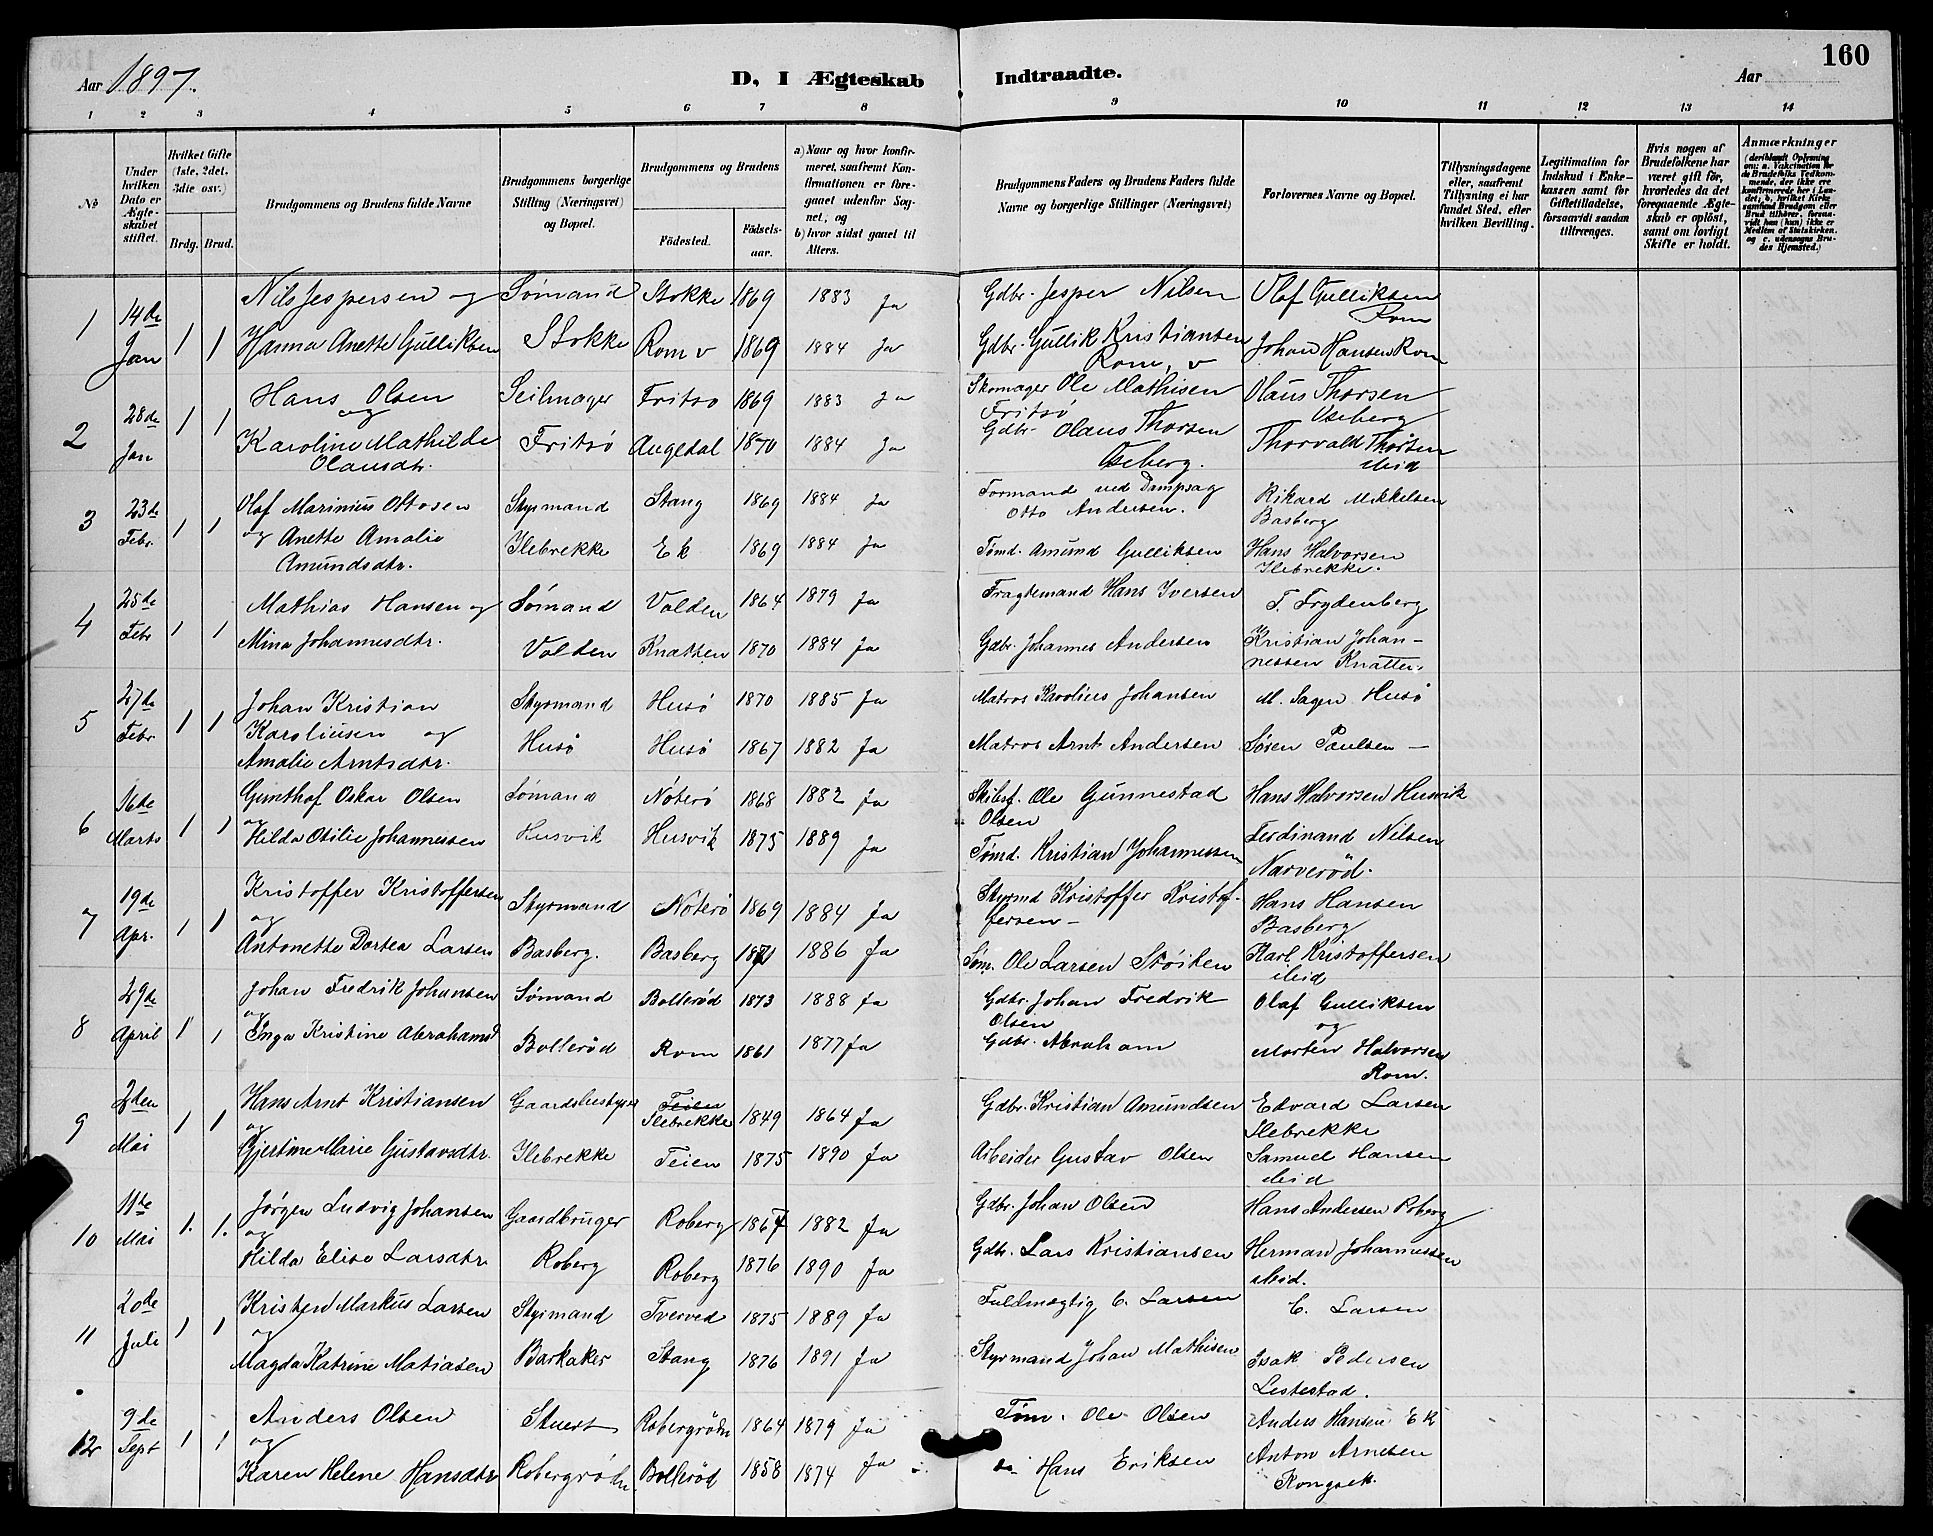 Aar 1897.
D, I Ægteskab Indtraadte.
Aar
160
1 2 3 4 5 6 7 8 9 10 11 12 13 14
No
Under hvilken Dato er Ægteskabet stiftet.
Hvilket Gifte (1ste, 2det, 3die osv.)
Brdg. Brud.
Brudgommens og Brudens fulde Navne
Brudgommens borgerlige Stilling (Næringsvei) og Bopæl.
Brudgommens og Brudens
Fødested.
Fødselsaar.
a) Naar og hvor konfirmeret, saafremt Konfirmationen er foregaaet udenfor Sognet; og
b) hvor sidst gaaet til Alters.
Brudgommens Faders og Brudens Faders fulde Navne og borgerlige Stillinger (Næringsvei)
Forlovernes Navne og Bopæl.
Tillysningsdagene eller, saafremt Tillysning ei har fundet Sted, efter hvilken Bevilling.
Legitimation for Indskud i Enkekassen samt for Giftetilladelse, forsaavidt saadan tiltrænges.
Hvis nogen af Brudefolkene har været gift før, hvorledes da det foregaaende Ægteskab er opløst, samt om lovligt Skifte er holdt.
Anmærkninger
1 14de Jan 1 1 Nils Jespersen og Sømand Stokke 1869 1883 Ja Gdbr. Jesper Nilsen Olaf Gulliksen Rom
Hanna Anette Gulliksen Stokke Rom v 1869 1884 Ja Gdbr. Gullik Kristiansen Rom, v Johan Hansen Rom
2 28de Jan 1 1 Hans Olsen og Seilmager Fritso 1869 1883 Ja Skomager Ole Mathisen Fritsó Olaus Thorsen Oseberg
Karoline Mathilde Olausdtr. Fritsó Augedal 1870 1884 Ja Gdbr. Olaus Thorsen Oseberg. Thorvald Thorsen ibid
3 23de Febr. 1 1 Olaf Marinius Ottosen Styrmand Stang 1869 1884 Ja Formand ved Dampsag Otto Andersen. Rikard Mikkelsen Basberg
og Anette Amalie Amundsdtr. Ilebrekke Ek 1869 1884 Ja Tømd. Amund Gulliksen Hans Halvorsen Ilebrekke.
4 25de Febr 1 1 Mathias Hansen og Sømand Volden 1864 1879 Ja Fragtemand Hans Iversen T. Frydenberg
Mina Johannesdtr. Volden Knatten 1870 1884 Ja Gdbr. Johannes Andersen Kristian Johannessen Knatten.
5 27de Febr 1 1 Johan Kristian Karoliusen og Styrmand Husö 1870 1885 Ja Matros Karolius Johansen M. Sagen Husö
Amalie Arntsdtr. Husö Husö 1867 1882 Ja Matros Arnt Andersen Søren Paulsen —
6 16de Marts 1 1 Gunthof Oskar Olsen og Sømand Nöterö 1868 1882 Ja Skibsf. Ole Gunnestad Olsen Hans Halvorsen Husvik
Hilda Otilie Johannessen Husvik Husvik 1875 1889 Ja Tømd. Kristian Johannessen Ferdinand Nilsen Narveröd.
7 19de Apr. 1 1 Kristoffer Kristoffersen og Styrmand Nöterö 1869 1884 Ja Styrmd Kristoffer Kristoffersen – Hans Hansen Basberg
Antonette Dortea Larsen Basberg. Basberg 1871 1886 Ja Søm. Ole Larsen Støiten Karl Kristoffersen ibid
8 29de April 1 1 Johan Fredrik Johansen og Sømand Bolleröd 1873 1888 Ja Gdbr. Johan Fredrik Olsen Olaf Gulliksen og
Inga Kristine Abrahamsd Bolleröd Rom 1861 1877 Ja Gdbr. Abraham Morten Halvorsen Rom.
9 2den Mai 1 1 Hans Arnt Kristiansen og Gaardsbestyrer Teien Ilebrekke 1849 1864 Ja Gdbr. Kristian Amundsen Edvard Larsen Ilebrekke
Gjertine Marie Gustavsdtr. Ilebrekke Teien 1875 1890 Ja Arbeider Gustav Olsen Samuel Hansen ibid
10 11te Mai 1. 1. Jørgen Ludvig Johansen og Gaardbruger Roberg 1867 1882 Ja Gdbr. Johan Olsen Hans Andersen Roberg
Hilda Elise Larsdtr Roberg Roberg 1876 1890 Ja Gdbr. Lars Kristiansen Herman Johannessen ibid.
11 20de Juli 1 1 Kristen Markus Larsen og Styrmand Tverved 1875 1889 Ja Fuldmægtig C. Larsen C. Larsen
Magda Katrine Matiasen Barkaker Stang 1876 1891 Ja Styrmand Johan Mathisen Isak Pedersen Lestestad.
12 9de Sept 1 1 Anders Olsen og Stuert Robergrödn 1864 1879 Ja Tøm. Ole Olsen Anders Hansen Ek
Karen Helene Hansdtr Robergrödn Bolleröd 1858 1874 Ja do Hans Eriksen Anton Arnesen Rongsek.